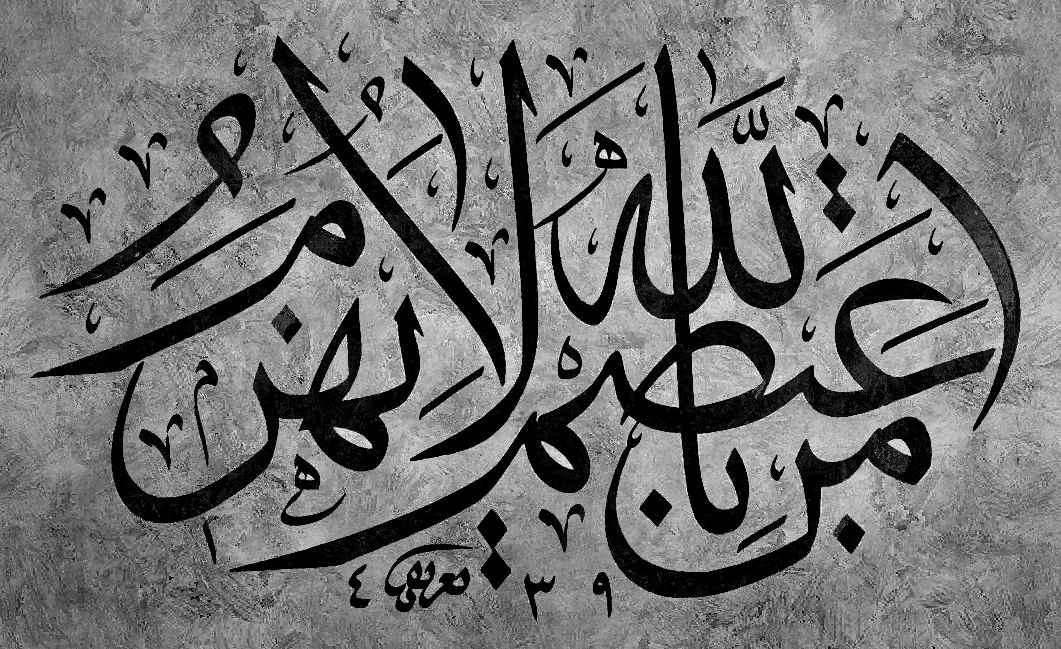 من اعتصم بالله لا يهزم
١٤٣٩